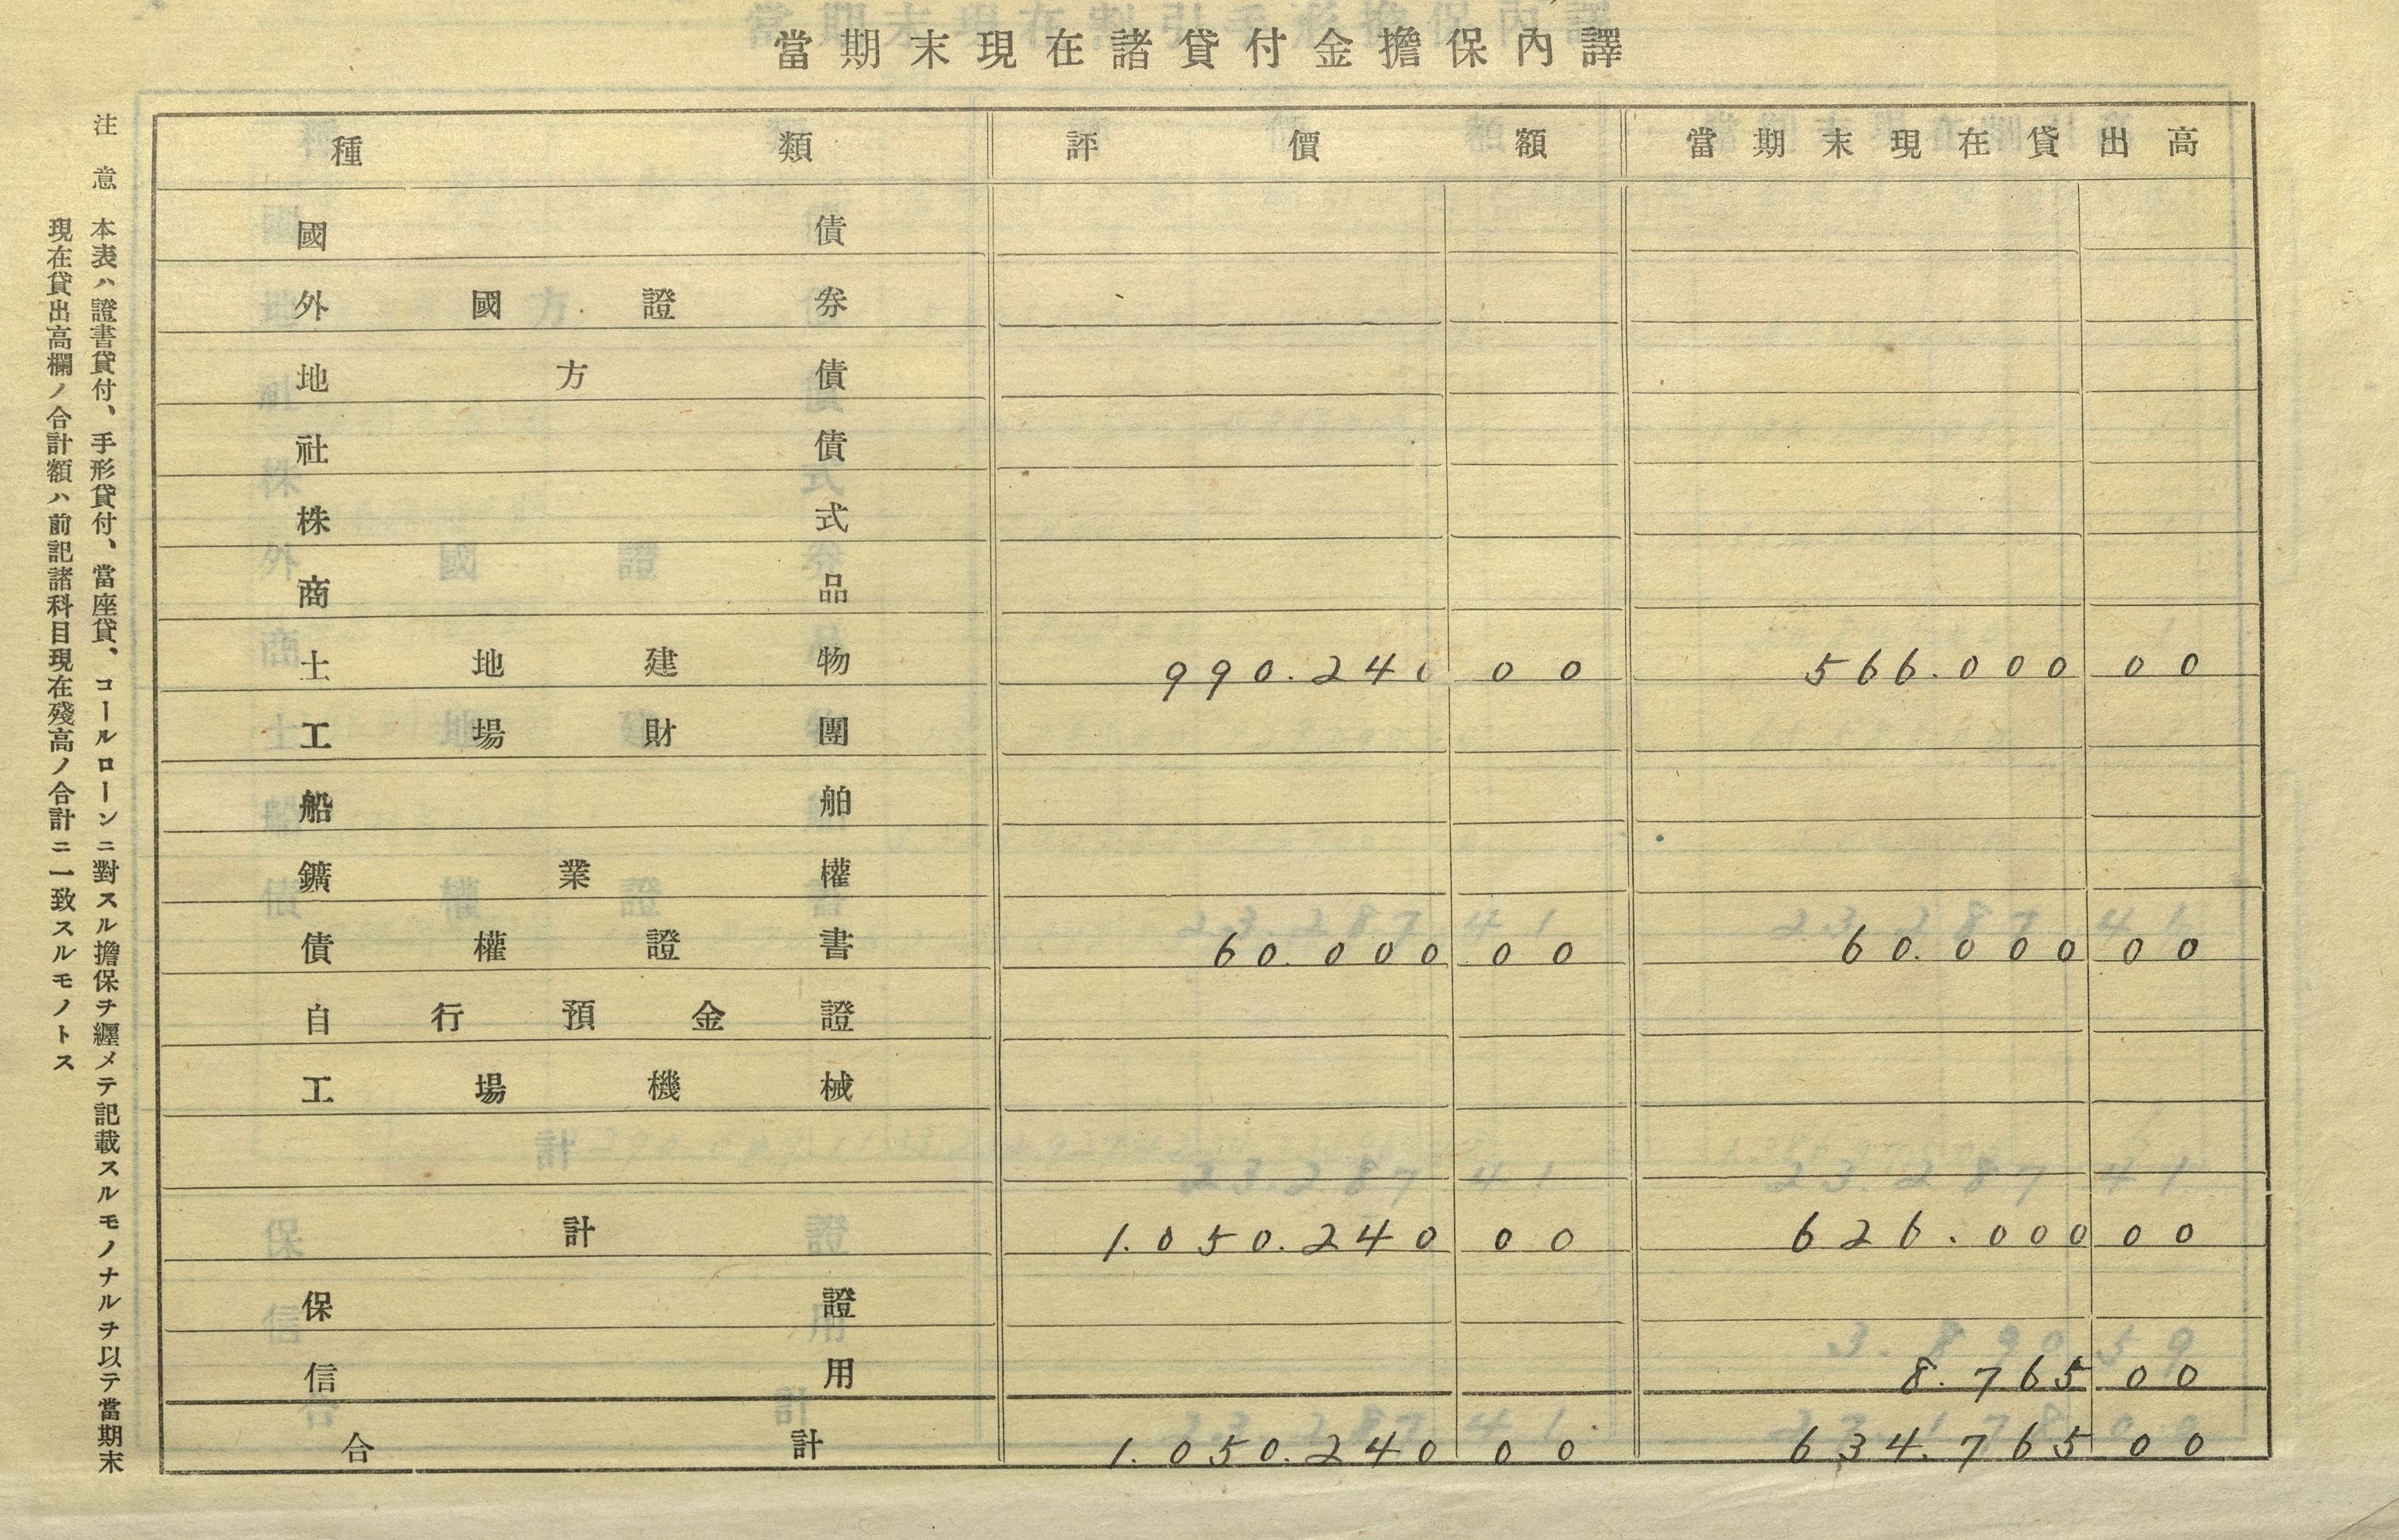 當期末現在諸貸付金擔保內譯
種類 評價額 當期末現在貸出高
國債
外國證券
地方債
社債
株式
商品
土地建物 990.240 00 566.000 00
工場財團
船舶
鑛業權
債權證書 60.000 00 60.000 00
自行預金證
工場機械
計 1.050.240 00 626.000 00
保證
信用 8.765 00
合計 1.050.240 00 634.765 00
注意 本表ハ證書貸付、手形貸付、當座貸、コールローンニ對スル擔保ヲ纒メテ記載スルモノナルヲ以テ當期末
現在貸出高欄ノ合計額ハ前記諸科目現在殘高ノ合計ニ一致スルモノトス